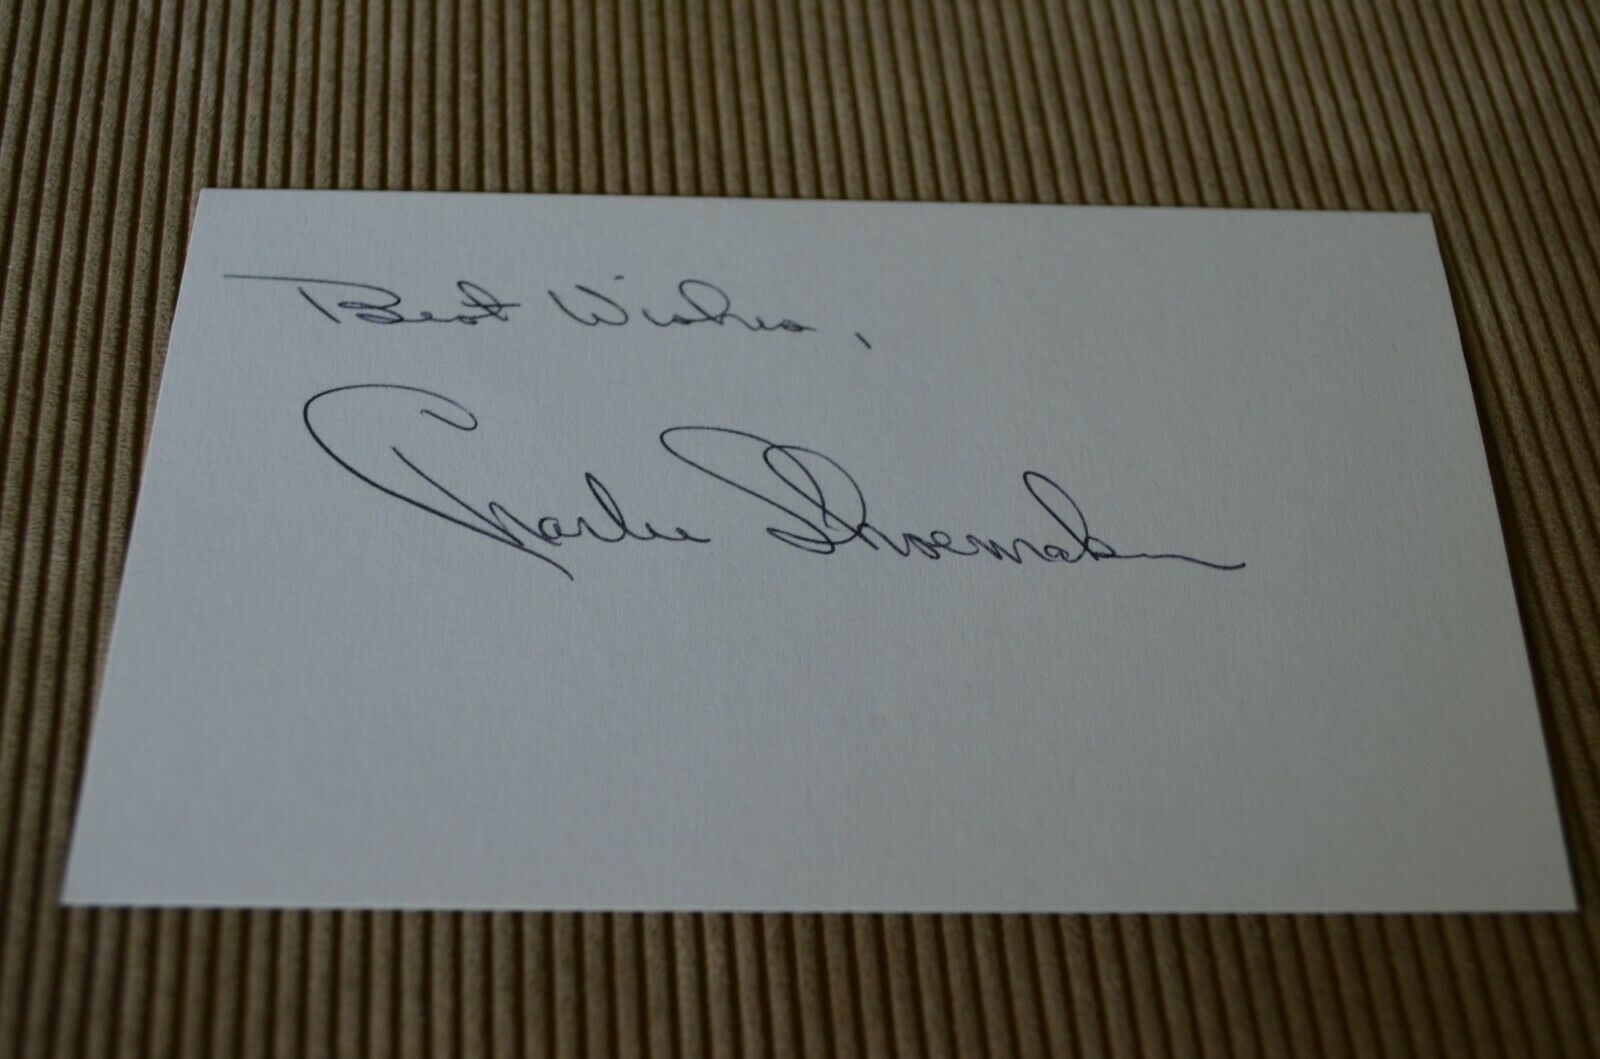 Best Wishes,
Charlie Shoemaker